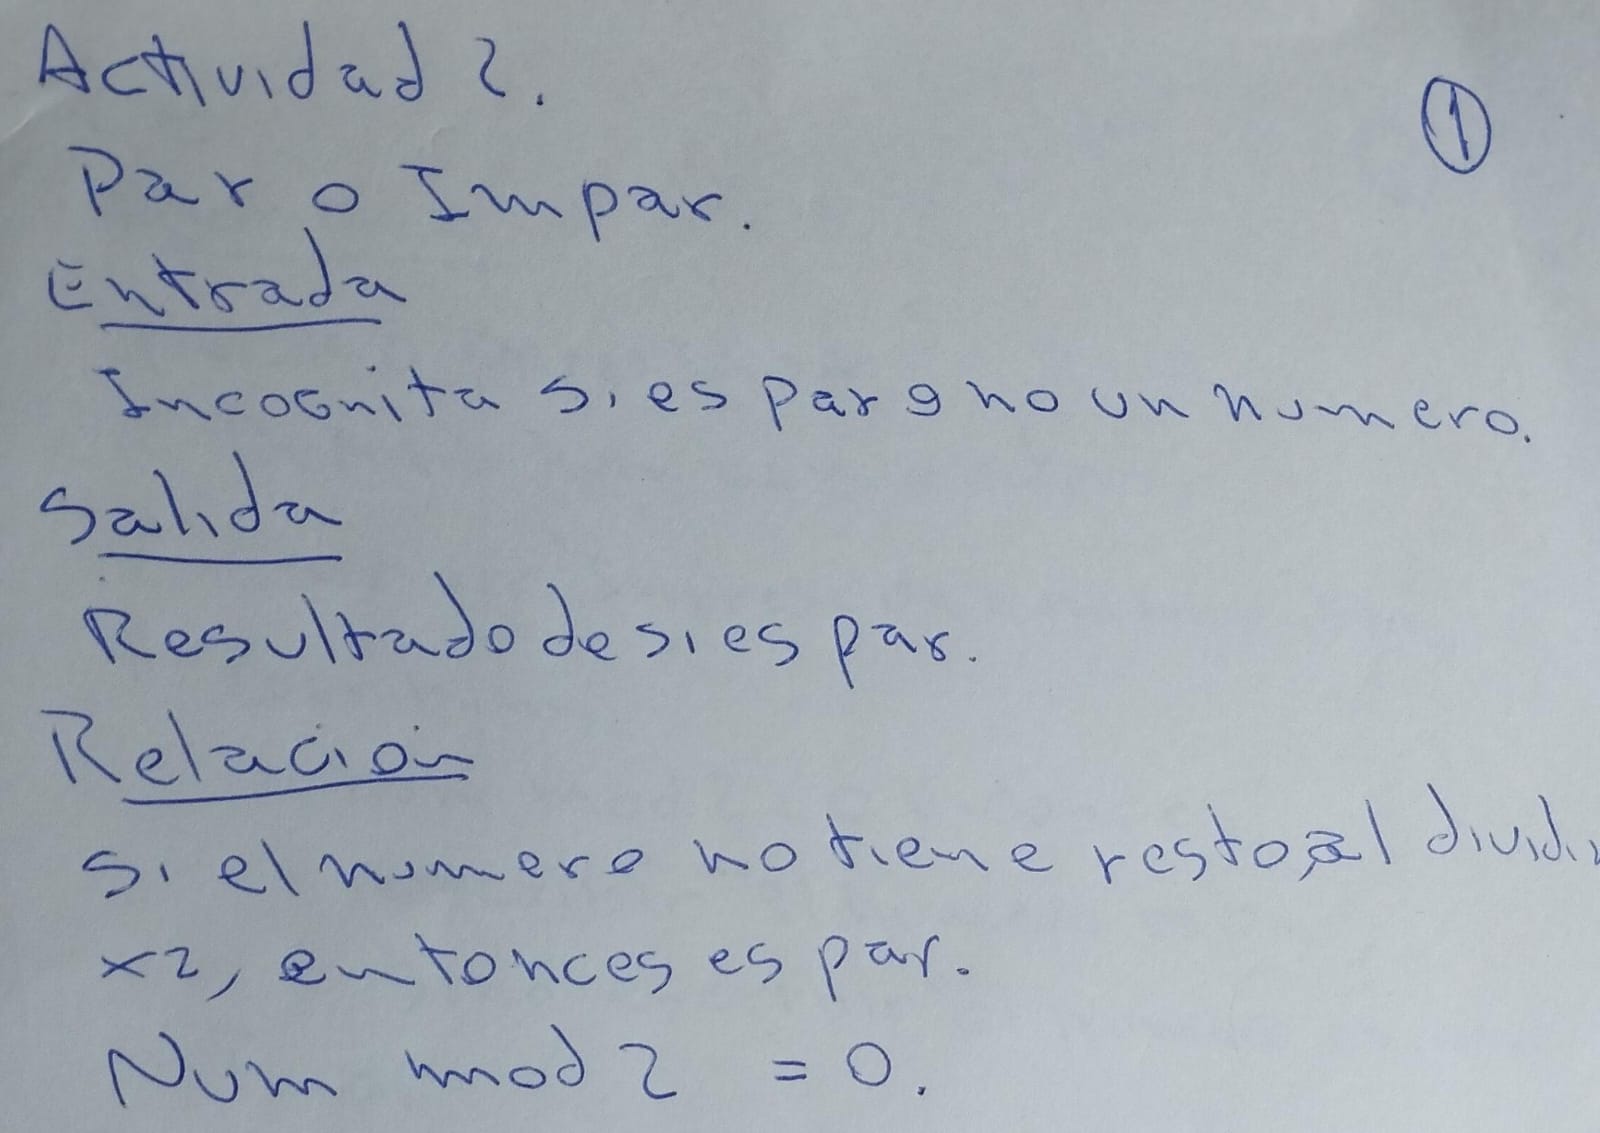 Actividad 2.
①
Par o Impar.
Entrada
Incognita si es par o no un numero.
Salida
Resultado de si es par.
Relacion
Si el numero no tiene resto, al dividir
x2, entonces es par.
Num mod 2 = 0.